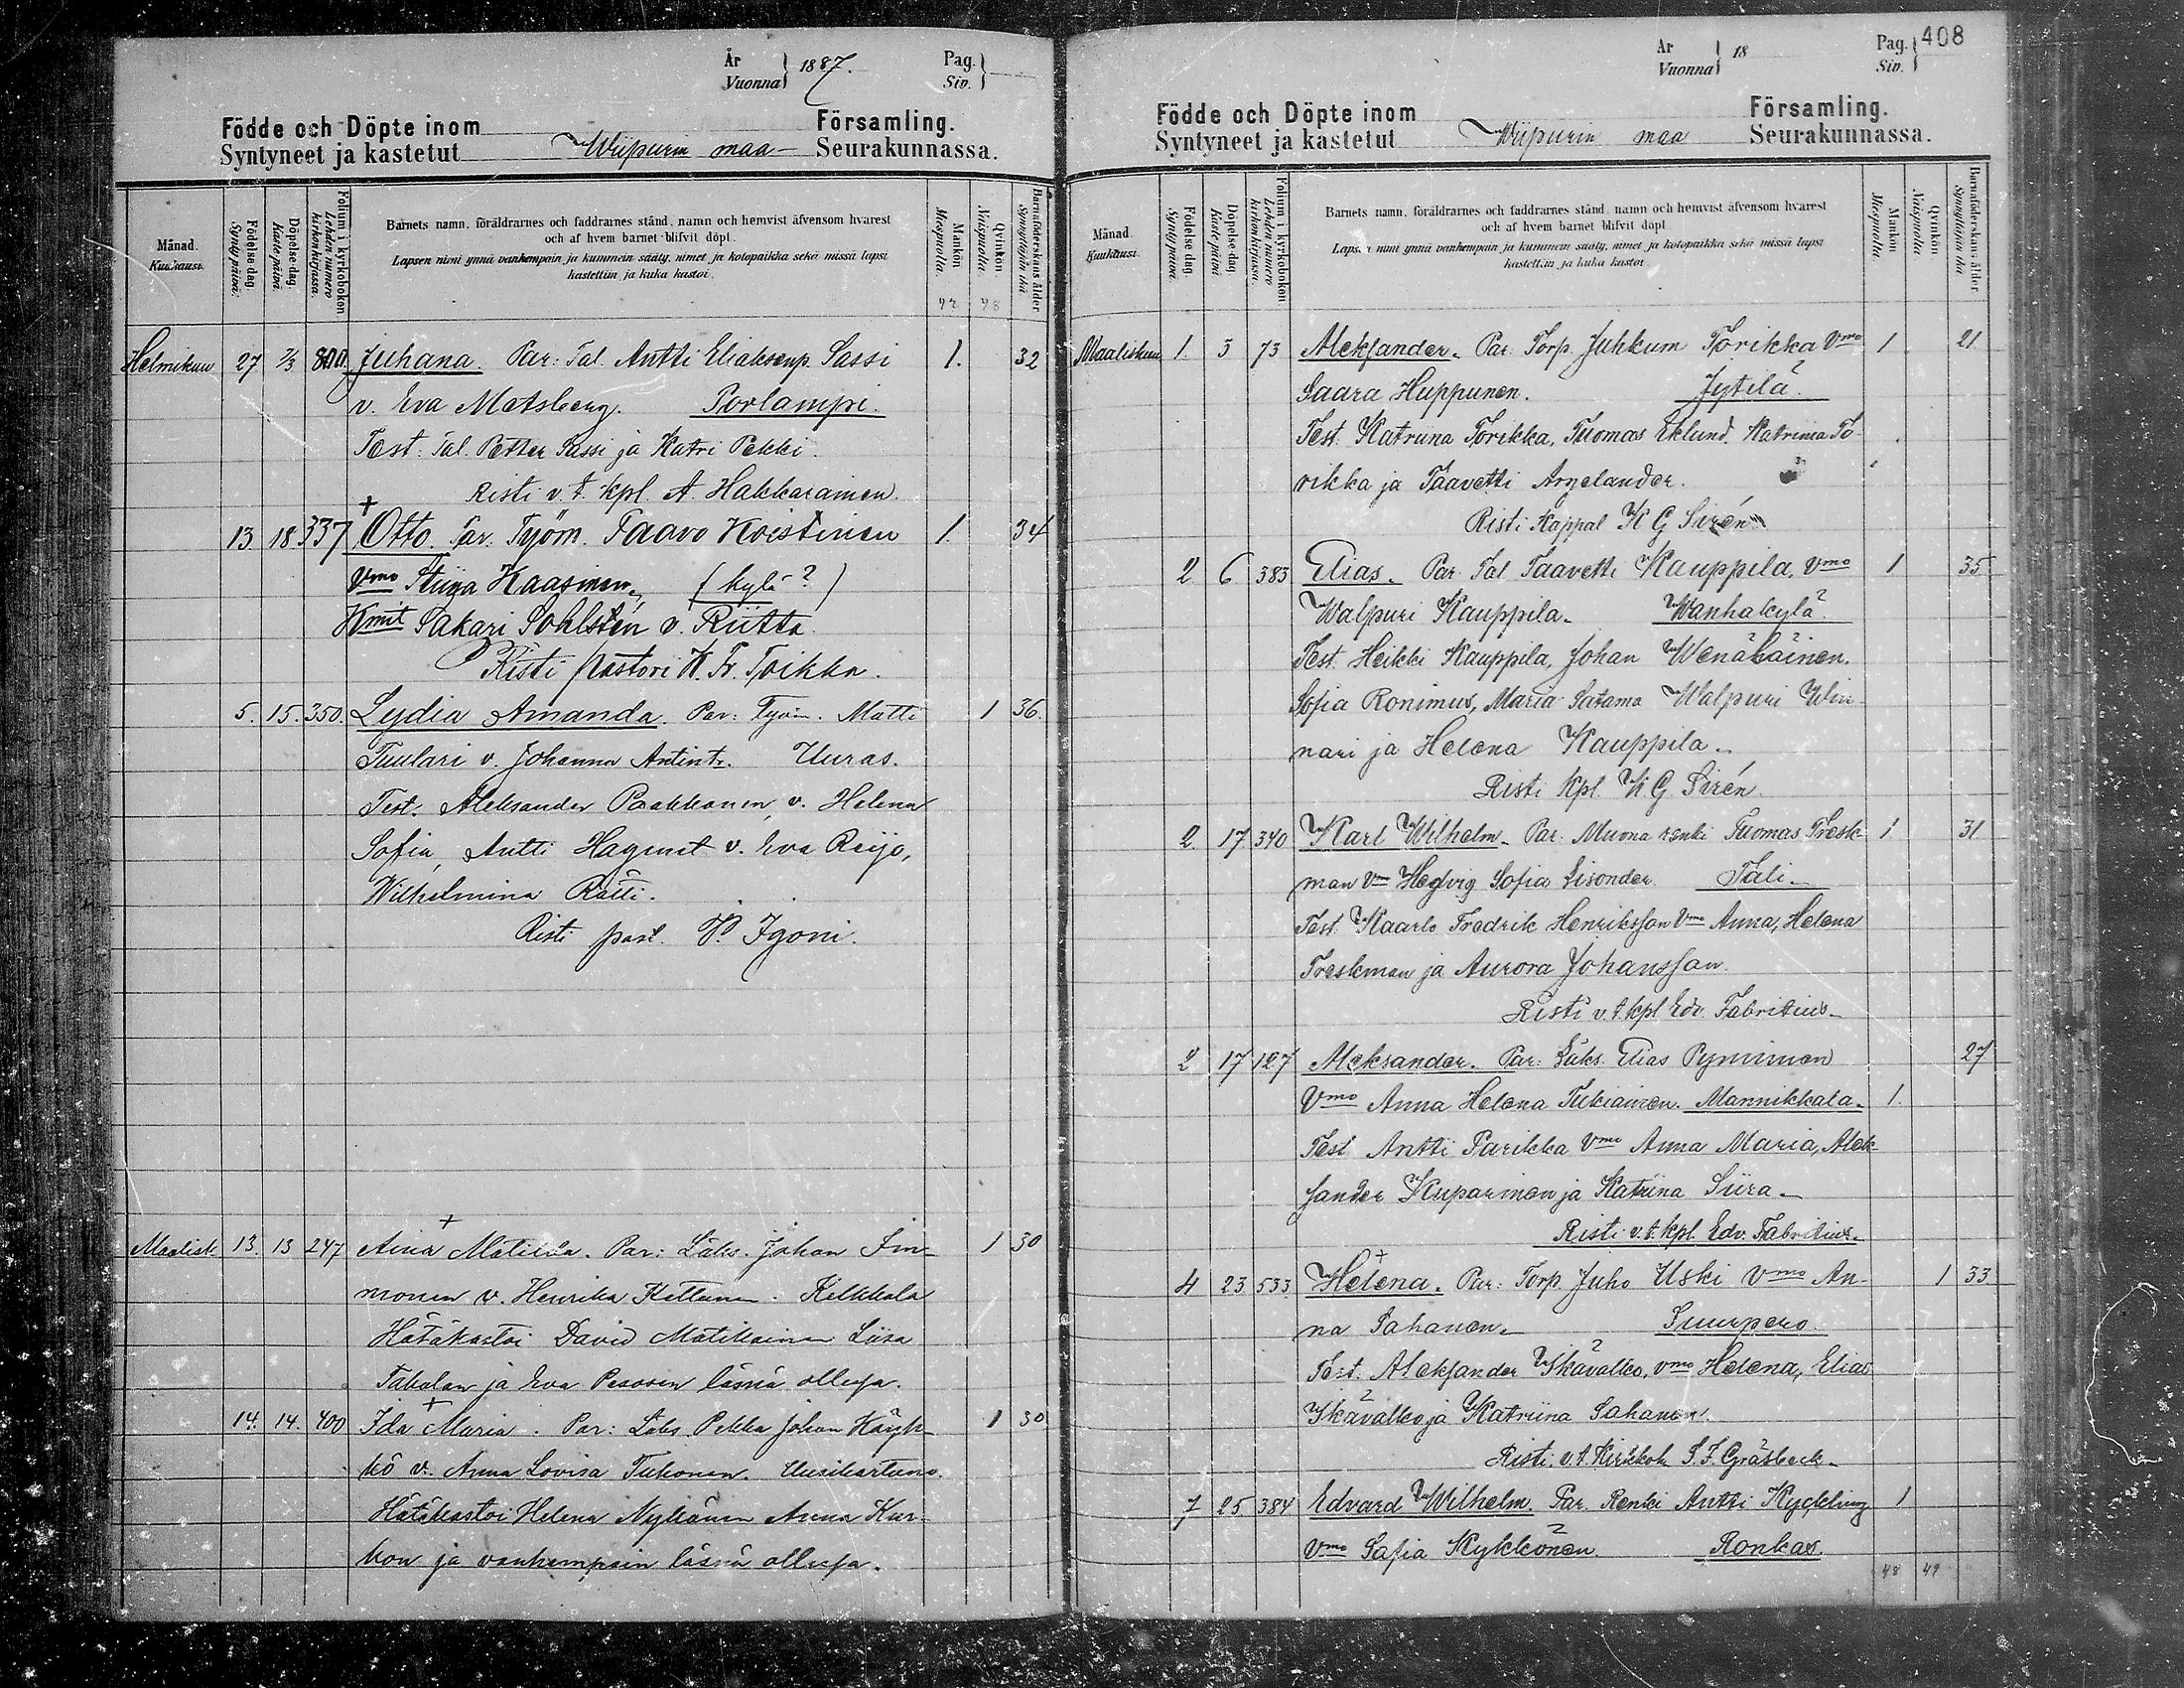 År
Vuonna } 1887.
Pag.
Siv. }
Födde och Döpte inom Församling.
Syntyneet ja kastetut Wiipurin maa- Seurakunnassa.
Månad.
Kuukausi.
Födelse-dag.
Synty-päivä.
Döpelse-dag.
Kaste-päivä.
Folium i kyrkoboken
Lehden numero
kirkonkirjassa.
Barnets namn, föräldrarnes och faddrarnes stånd, namn och hemvist äfvensom hvarest
och af hvem barnet blifvit döpt.
Lapsen nimi ynnä vanhempain ja kummein sääty, nimet ja kotopaikka sekä missä lapsi
kastettiin ja kuka kastoi.
Mankön
Miespuolia.
Qvinkön
Naispuolia.
Barnaföderskans ålder
Synnyttäjän ikä
Helmikuu 27 2/3 800. Juhana. Par: Tal. Antti Eliaksenp. Sassi 1. 32
v. Eva Matsberg. Porlampi.
Test: Tal. Petter Sassi ja Katri Pekki.
Risti v. t. kpl. A. Hakkarainen.
13 18 337 Otto. Par. Työm. Paavo Koistinen 1. 34
Vmo Stiina Kaasinen, ( kylä ? )
Kmit Sakari Sohlstén v. Riitta.
Risti pastori K. Fr. Toikka.
5. 15. 350. Lydia Amanda. Par: Työm. Matti 1 36.
Tuulari v. Johanna Antint. Uuras.
Test. Aleksander Paakkonen v. Helena
Sofia, Antti Hagmat v. Eva Reijo,
Wilhelmina Rätti.
Risti past. P. Igoni.
Maalisk. 13. 13 247 Aina Matilda. Par: Läks. Johan Sin- 1 30
monen v. Henrika Kettunen. Kelkkala
Hätäkastoi David Matikainen Liisa
Takalan ja Eva Pesosen läsnä ollessa.
14. 14. 400 Ida Maria. Par: Läks. Pekka Johan Häyh- 1 30
kö v. Anna Lovisa Tukonen. Uusikartano.
Hätäkastoi Helena Nykänen Anna Kur-
kon ja vanhempain läsnä ollessa.
År
Vuonna } 18
Pag.
Siv. } 408
Födde och Döpte inom Församling.
Syntyneet ja kastetut Wiipurin maa Seurakunnassa.
Månad.
Kuukausi.
Födelse-dag.
Synty-päivä.
Döpelse-dag.
Kaste-päivä.
Folium i kyrkoboken
Lehden numero
kirkonkirjassa.
Barnets namn, föräldrarnes och faddrarnes stånd, namn och hemvist äfvensom hvarest
och af hvem barnet blifvit döpt
Lapsen nimi ynnä vanhempain ja kummein sääty, nimet ja kotopaikka sekä missä lapsi
kastettiin ja kuka kastoi.
Mankön
Miespuolia
Qvinkön
Naispuolia
Barnaföderskans ålder
Synnyttäjän ikä
Maaliskuu 1. 3 73 Aleksander. Par. Torp. Juhkum Torikka Vmo 1 21
Saara Huppunen. Jytilä.
Test. Katriina Torikka, Tuomas Eklund. Katriina To-
rikka ja Taavetti Argelander.
Risti Kappal K G Sirén
2 6 383 Elias. Par. Tal. Taavetti Kauppila, Vmo 1 35
Walpuri Kauppila. Wanhakylä.
Test. Heikki Kauppila, Johan Wenäläinen.
Sofia Ronimus, Maria Satama Walpuri Win-
nari ja Helena Kauppila.
Risti Kpl. K G Sirén
2 17 340 Karl Wilhelm. Par: Muona renki Tuomas Tresk- 1 31
man Vmo Hedvig Sofia Lisander Tali.
Test. Kaarlo Fredrik Henriksson Vmo Anna, Helena
Treskman ja Aurora Johansson.
Risti v. t. kpl Edv. Fabritius
2 17 127 Aleksander. Par: Läks. Elias Pynninen 27
Vmo Anna Helena Tukiainen. Mannikkala. 1.
Test Antti Parikka Vmo Anna Maria, Alek-
sander Kuparinen ja Katriina Siira.
Risti v. t. kpl. Edv. Fabritius.
4 23 533. Helena. Par: Torp. Juho Uski Vmo An- 1 33
na Sahanen. Suurpero.
Test. Aleksander Ikävalko, vmo Helena, Elias
Ikävalko ja Katriina Sahanen.
Risti. v. t. Kirkkoh. S. F. Gräsbeck
7 25 384 Edvard Wilhelm. Par. Renki Antti Kyckling 1
Vmo Sofia Kykkönen. Ronkas.
48 49